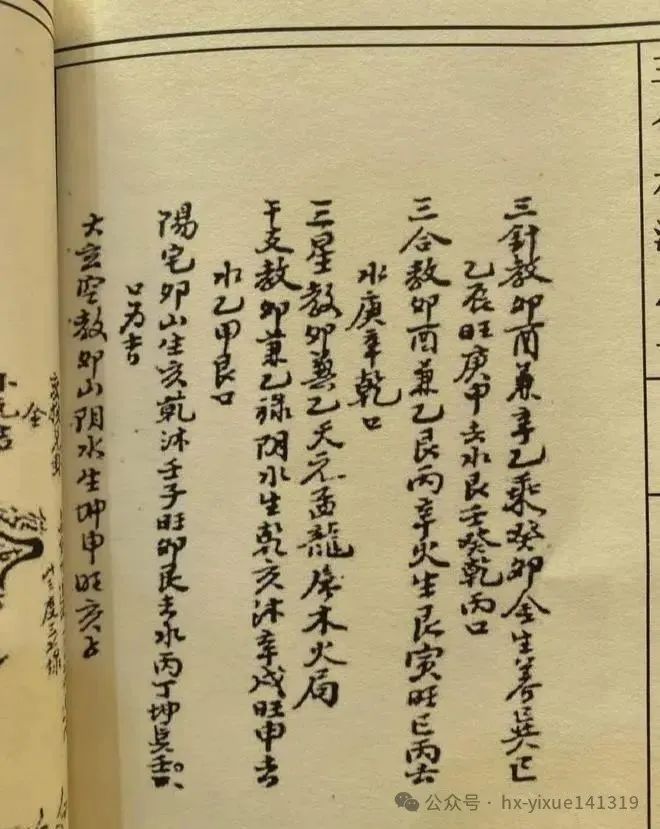 三針教卯酉兼辛乙乘癸卯金生養巽巳
乙辰旺庚甲去水艮壬癸乾丙口
三合教卯酉兼乙艮丙辛火生艮寅旺巳丙去
水庚辛乾口
三星教卯兼乙天元孟龍屬木火局
干支教卯兼乙祿阴水生乾亥沐辛戌旺申去
水乙甲艮口
陽宅卯山生亥乾沐壬子旺卯艮去水丙丁坤
口为吉
大玄空教卯山阴水生坤申旺亥
公众号 · hx-yixue141319